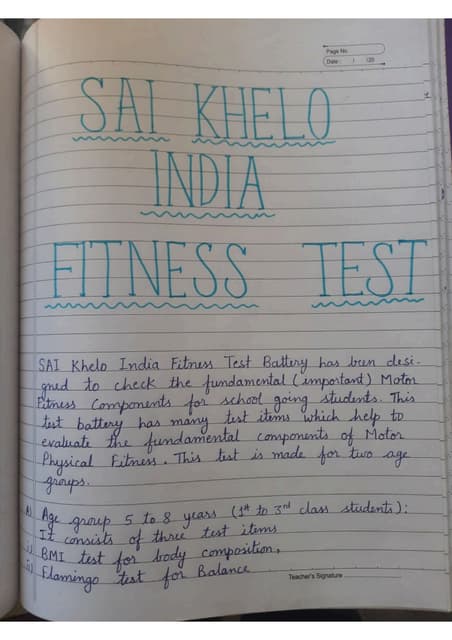 Page No.
Date : / /20
SAI KHELO
INDIA
FITNESS TEST
SAI Khelo India Fitness Test Battery has been desi-
gned to check the fundamental (important) Motor
Fitness Components for school going students. This
test battery has many test items which help to
evaluate the fundamental components of Motor
Physical Fitness. This test is made for two age
groups.
A) Age group 5 to 8 years (1st to 3rd class students):
It consists of three test items
i) BMI test for body composition,
ii) Flamingo test for Balance
Teacher's Signature